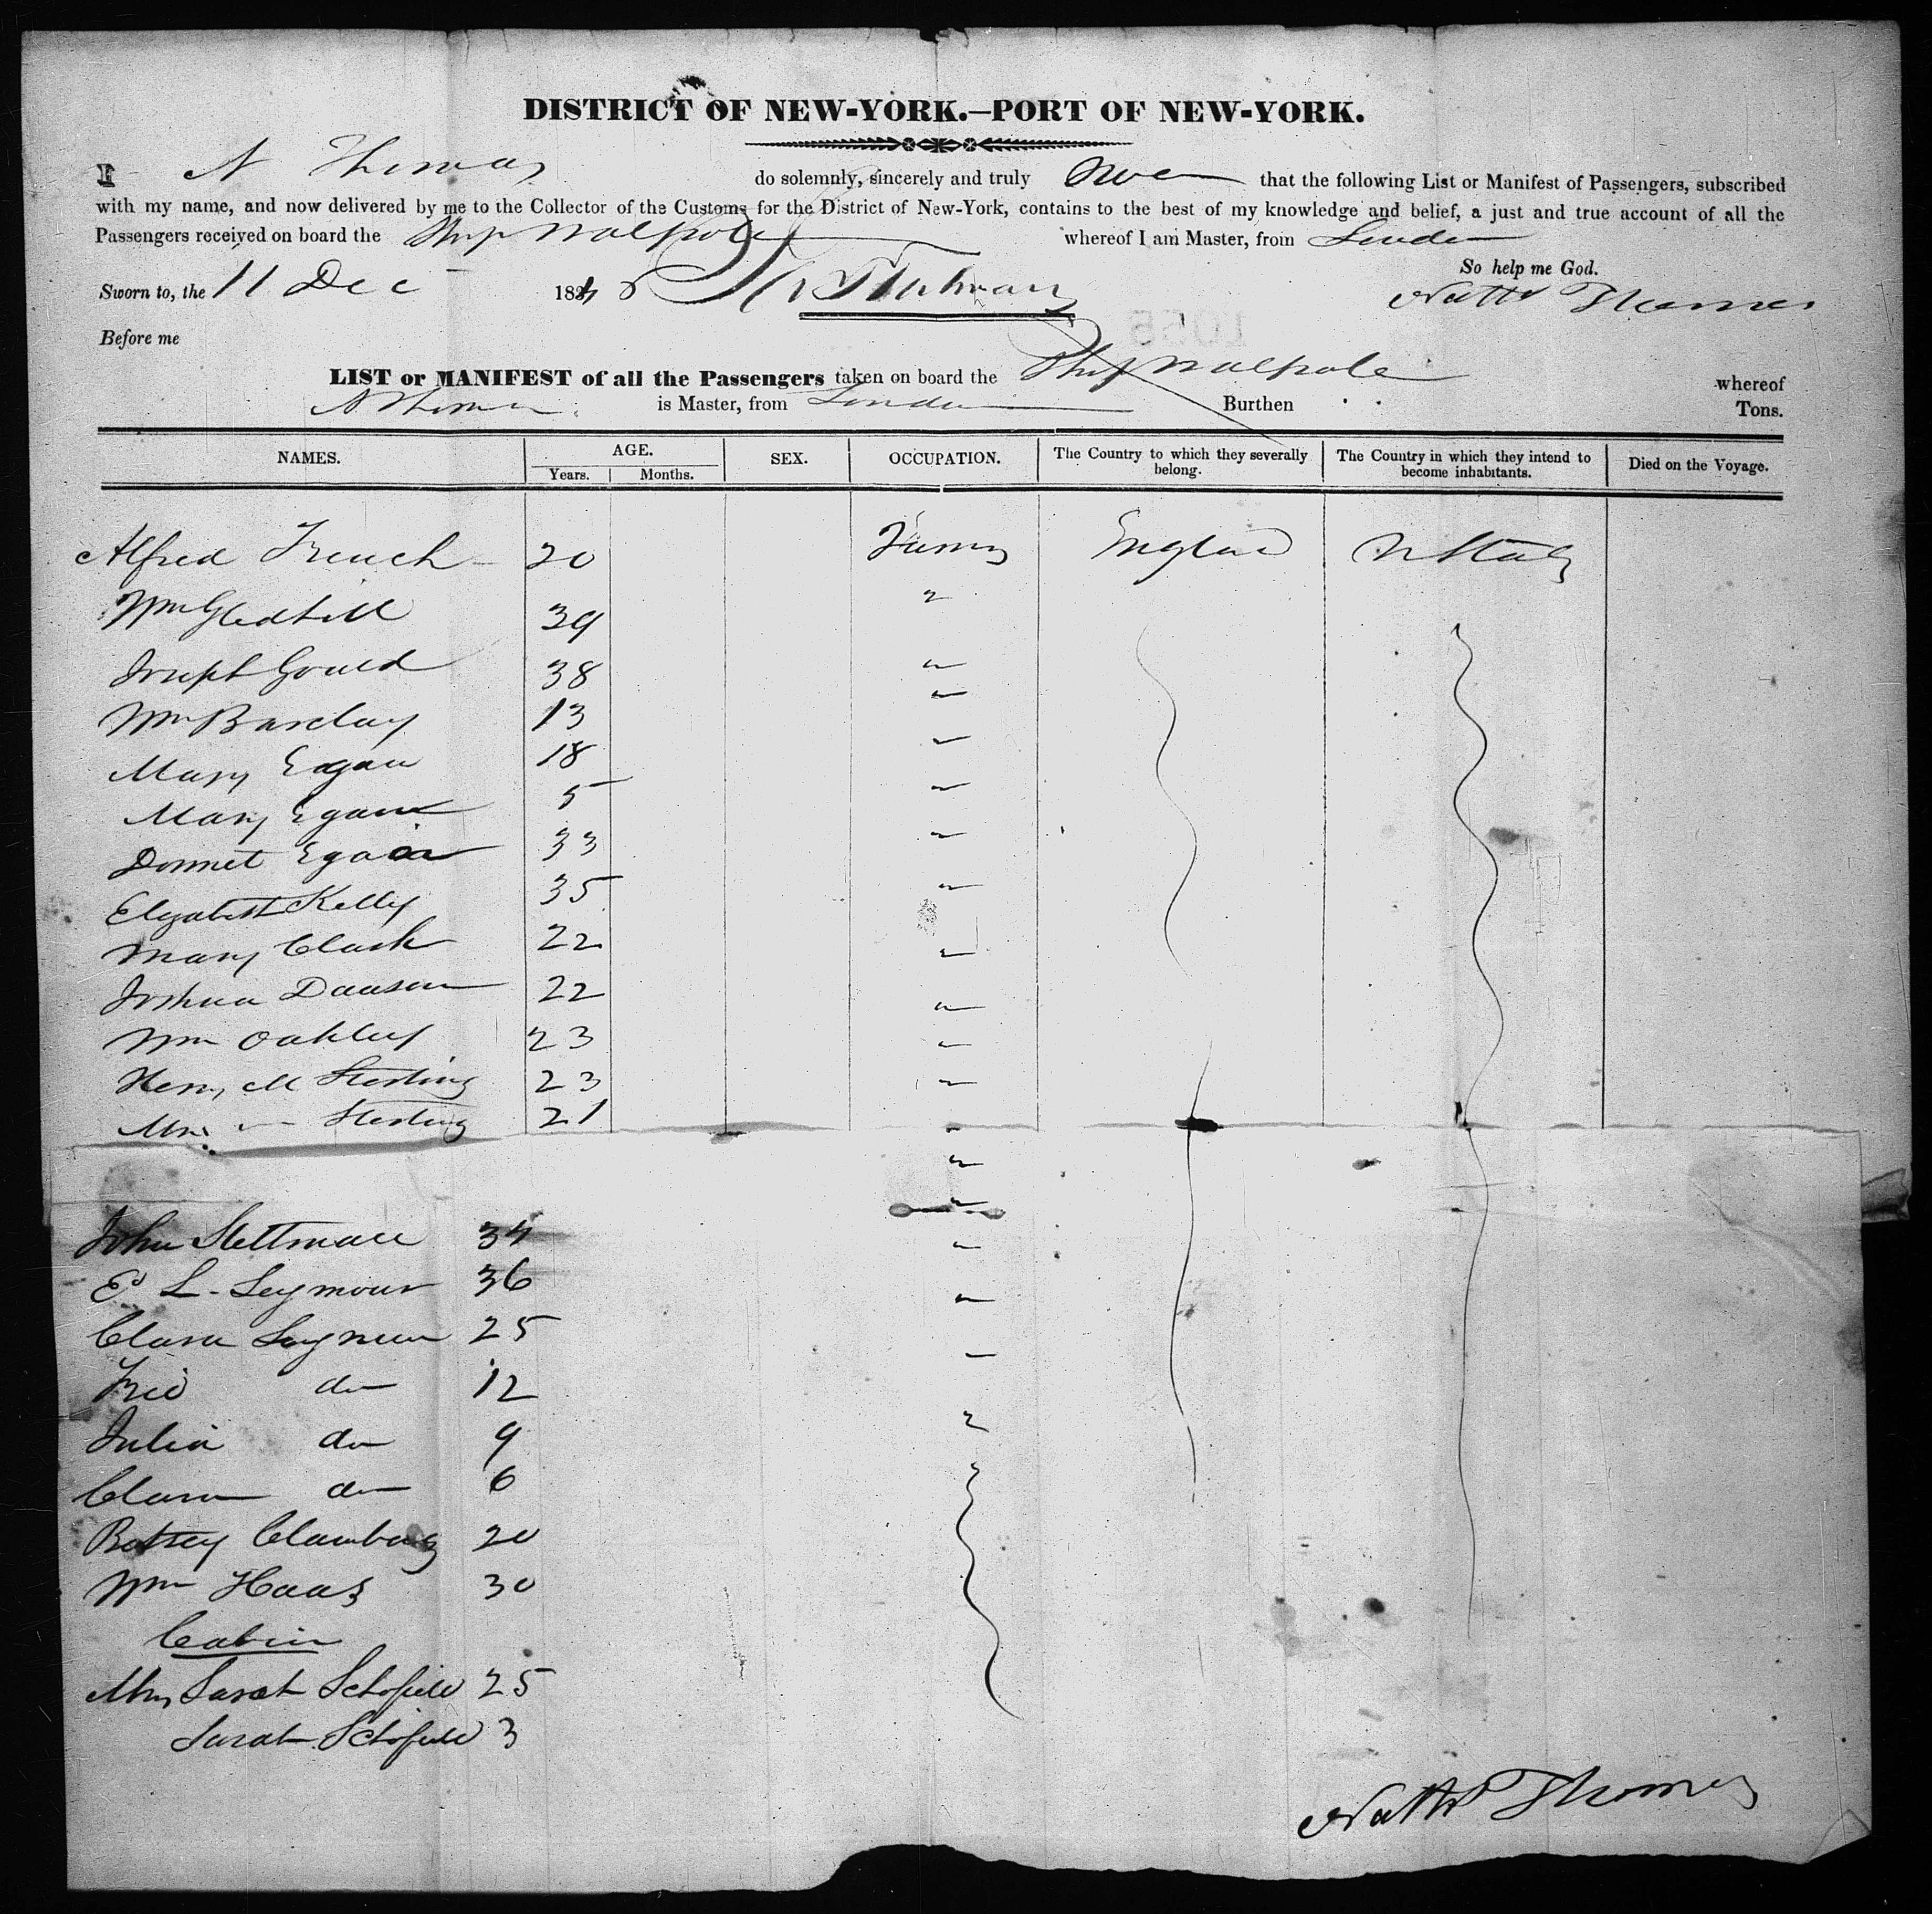 DISTRICT OF NEW-YORK.—PORT OF NEW-YORK.
I N Thomas do solemnly, sincerely and truly swear that the following List or Manifest of Passengers, subscribed
with my name, and now delivered by me to the Collector of the Customs for the District of New-York, contains to the best of my knowledge and belief, a just and true account of all the
Passengers received on board the Ship Walpole whereof I am Master, from London
So help me God.
Sworn to, the 11 Dec 184 Nathl Thomas
Before me
LIST or MANIFEST of all the Passengers taken on board the Ship Walpole whereof
N Thomas is Master, from London Burthen Tons.
NAMES. AGE. SEX. OCCUPATION. The Country to which they severally belong. The Country in which they intend to become inhabitants. Died on the Voyage.
Years. Months.
Alfred French 20 England U States
Wm Gledhill 39 "
Joseph Gould 38 "
Wm Barclay 13 "
Mary Egan 18 "
Mary Egan 5 "
Donnet Egan 33 "
Elizabeth Kelly 35 "
Mary Clark 22 "
Joshua Dawson 22 "
Wm Oakley 23 "
Henry M Sterling 23 "
Mrs " Sterling 21 "
John 34 "
Ed L. Seymour 36 "
Clara Seymour 25 "
Fred do 12 "
Julia do 9 "
Clara do 6
Betsey 20
Wm Haas 30
Cabin
Mrs Sarah Schofield 25
Sarah Schofield 3
Nathl Thomas